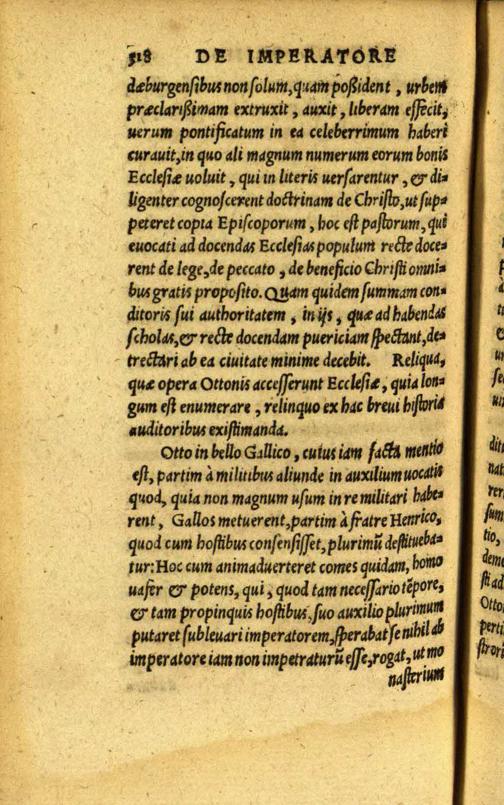 318 DE IMPERATORE
dæburgensibus non solum, quam poßident, urbem
præclarißimam extruxit, auxit, liberam effecit,
uerum pontificatum in ea celeberrimum haberi
curauit, in quo ali magnum numerum eorum bonis
Ecclesiæ uoluit, qui in literis uersarentur, & di-
ligenter cognoscerent doctrinam de Christo, ut sup-
peteret copia Episcoporum, hoc est pastorum, qui
euocati ad docendas Ecclesias populum recte doce-
rent de lege, de peccato, de beneficio Christi omni-
bus gratis proposito. Quam quidem summam con-
ditoris sui authoritatem, in ijs, quæ ad habendas
scholas, & recte docendam puericiam spectant, de-
trectari ab ea ciuitate minime decebit. Reliqua,
quæ opera Ottonis accesserunt Ecclesiæ, quia lon-
gum est enumerare, relinquo ex hac breui historia
auditoribus existimanda.
Otto in bello Gallico, cuius iam facta mentio
est, partim à militibus aliunde in auxilium uocatis
quod, quia non magnum usum in re militari habe-
rent, Gallos metuerent, partim à fratre Henrico,
quod cum hostibus consensisset, plurimũ destitueba-
tur: Hoc cum animaduerteret comes quidam, homo
uafer & potens, qui, quod tam necessario tẽpore,
& tam propinquis hostibus, suo auxilio plurimum
putaret subleuari imperatorem, sperabat se nihil ab
imperatore iam non impetraturũ esse, rogat, ut mo
nasterium